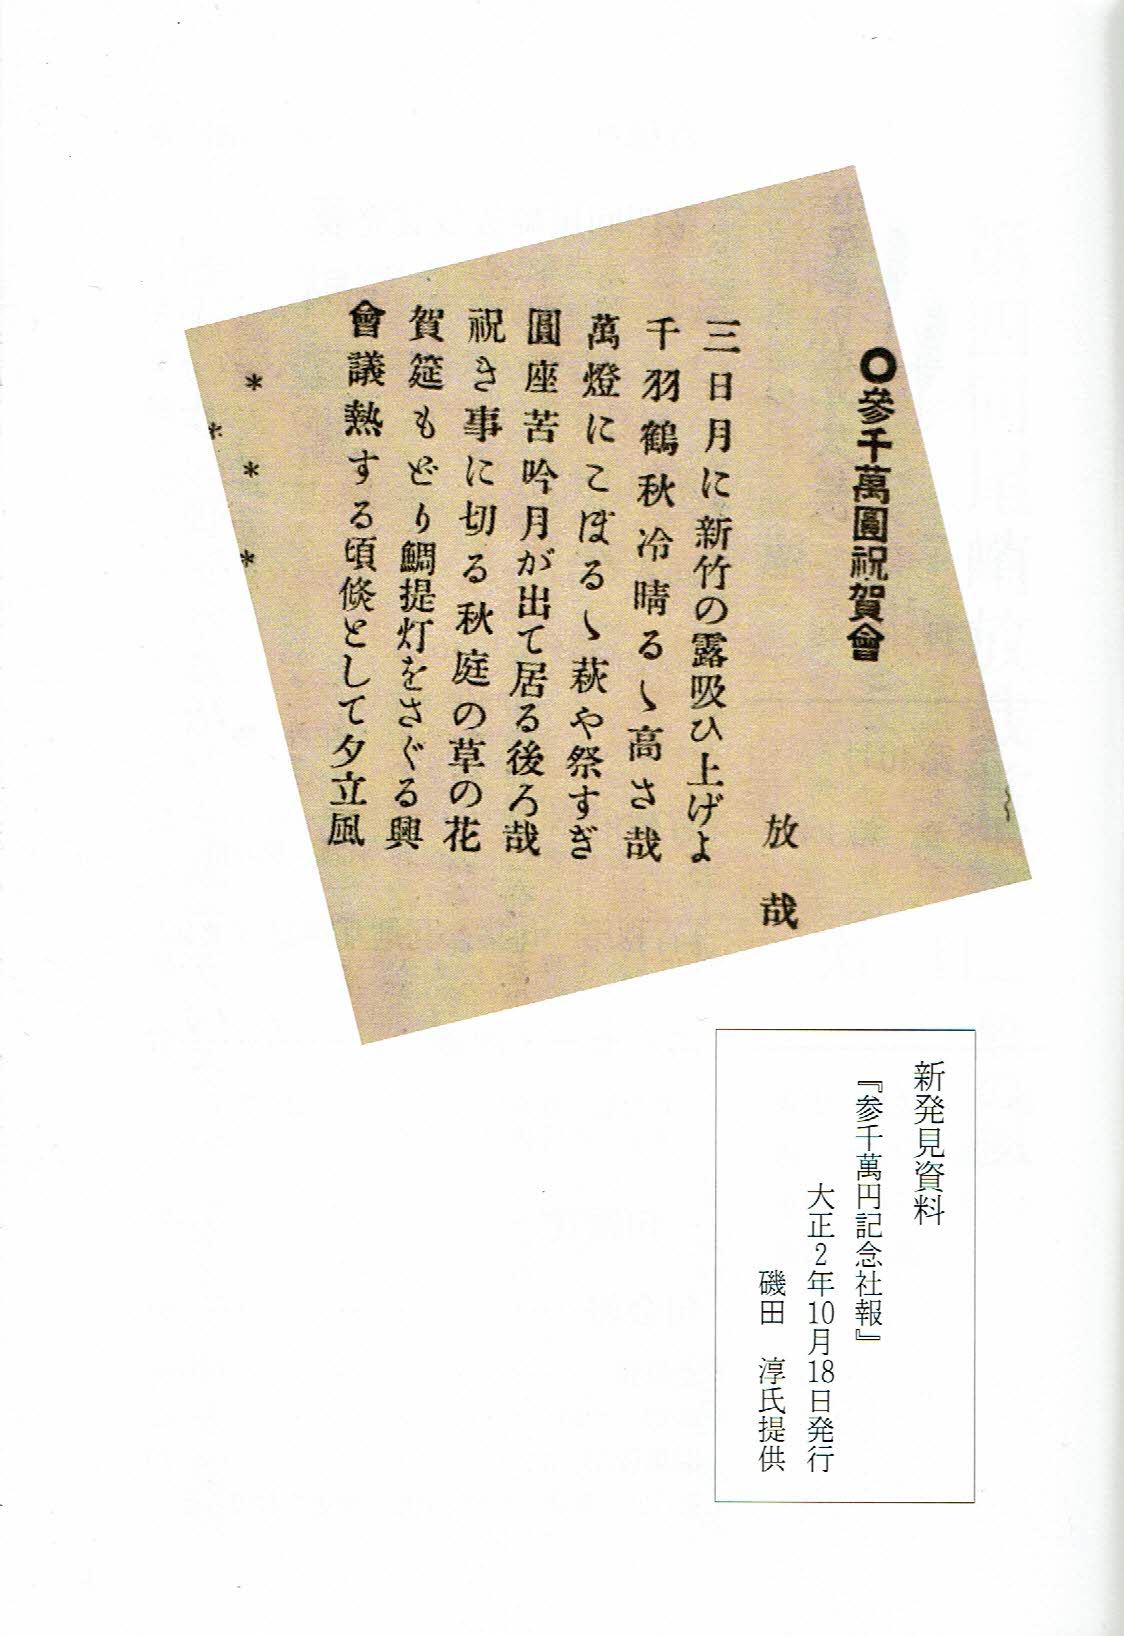 ○參千萬圓祝賀會
放哉
三日月に新竹の露吸ひ上げよ
千羽鶴秋冷晴るゝ高さ哉
萬燈にこぼるゝ萩や祭すぎ
圓座苦吟月が出て居る後ろ哉
祝き事に切る秋庭の草の花
賀筵もどり鯛提灯をさぐる興
會議熱する頃倏として夕立風
＊　＊　＊
＊　＊
新発見資料
『参千萬円記念社報』
大正2年10月18日発行
磯田　淳氏提供